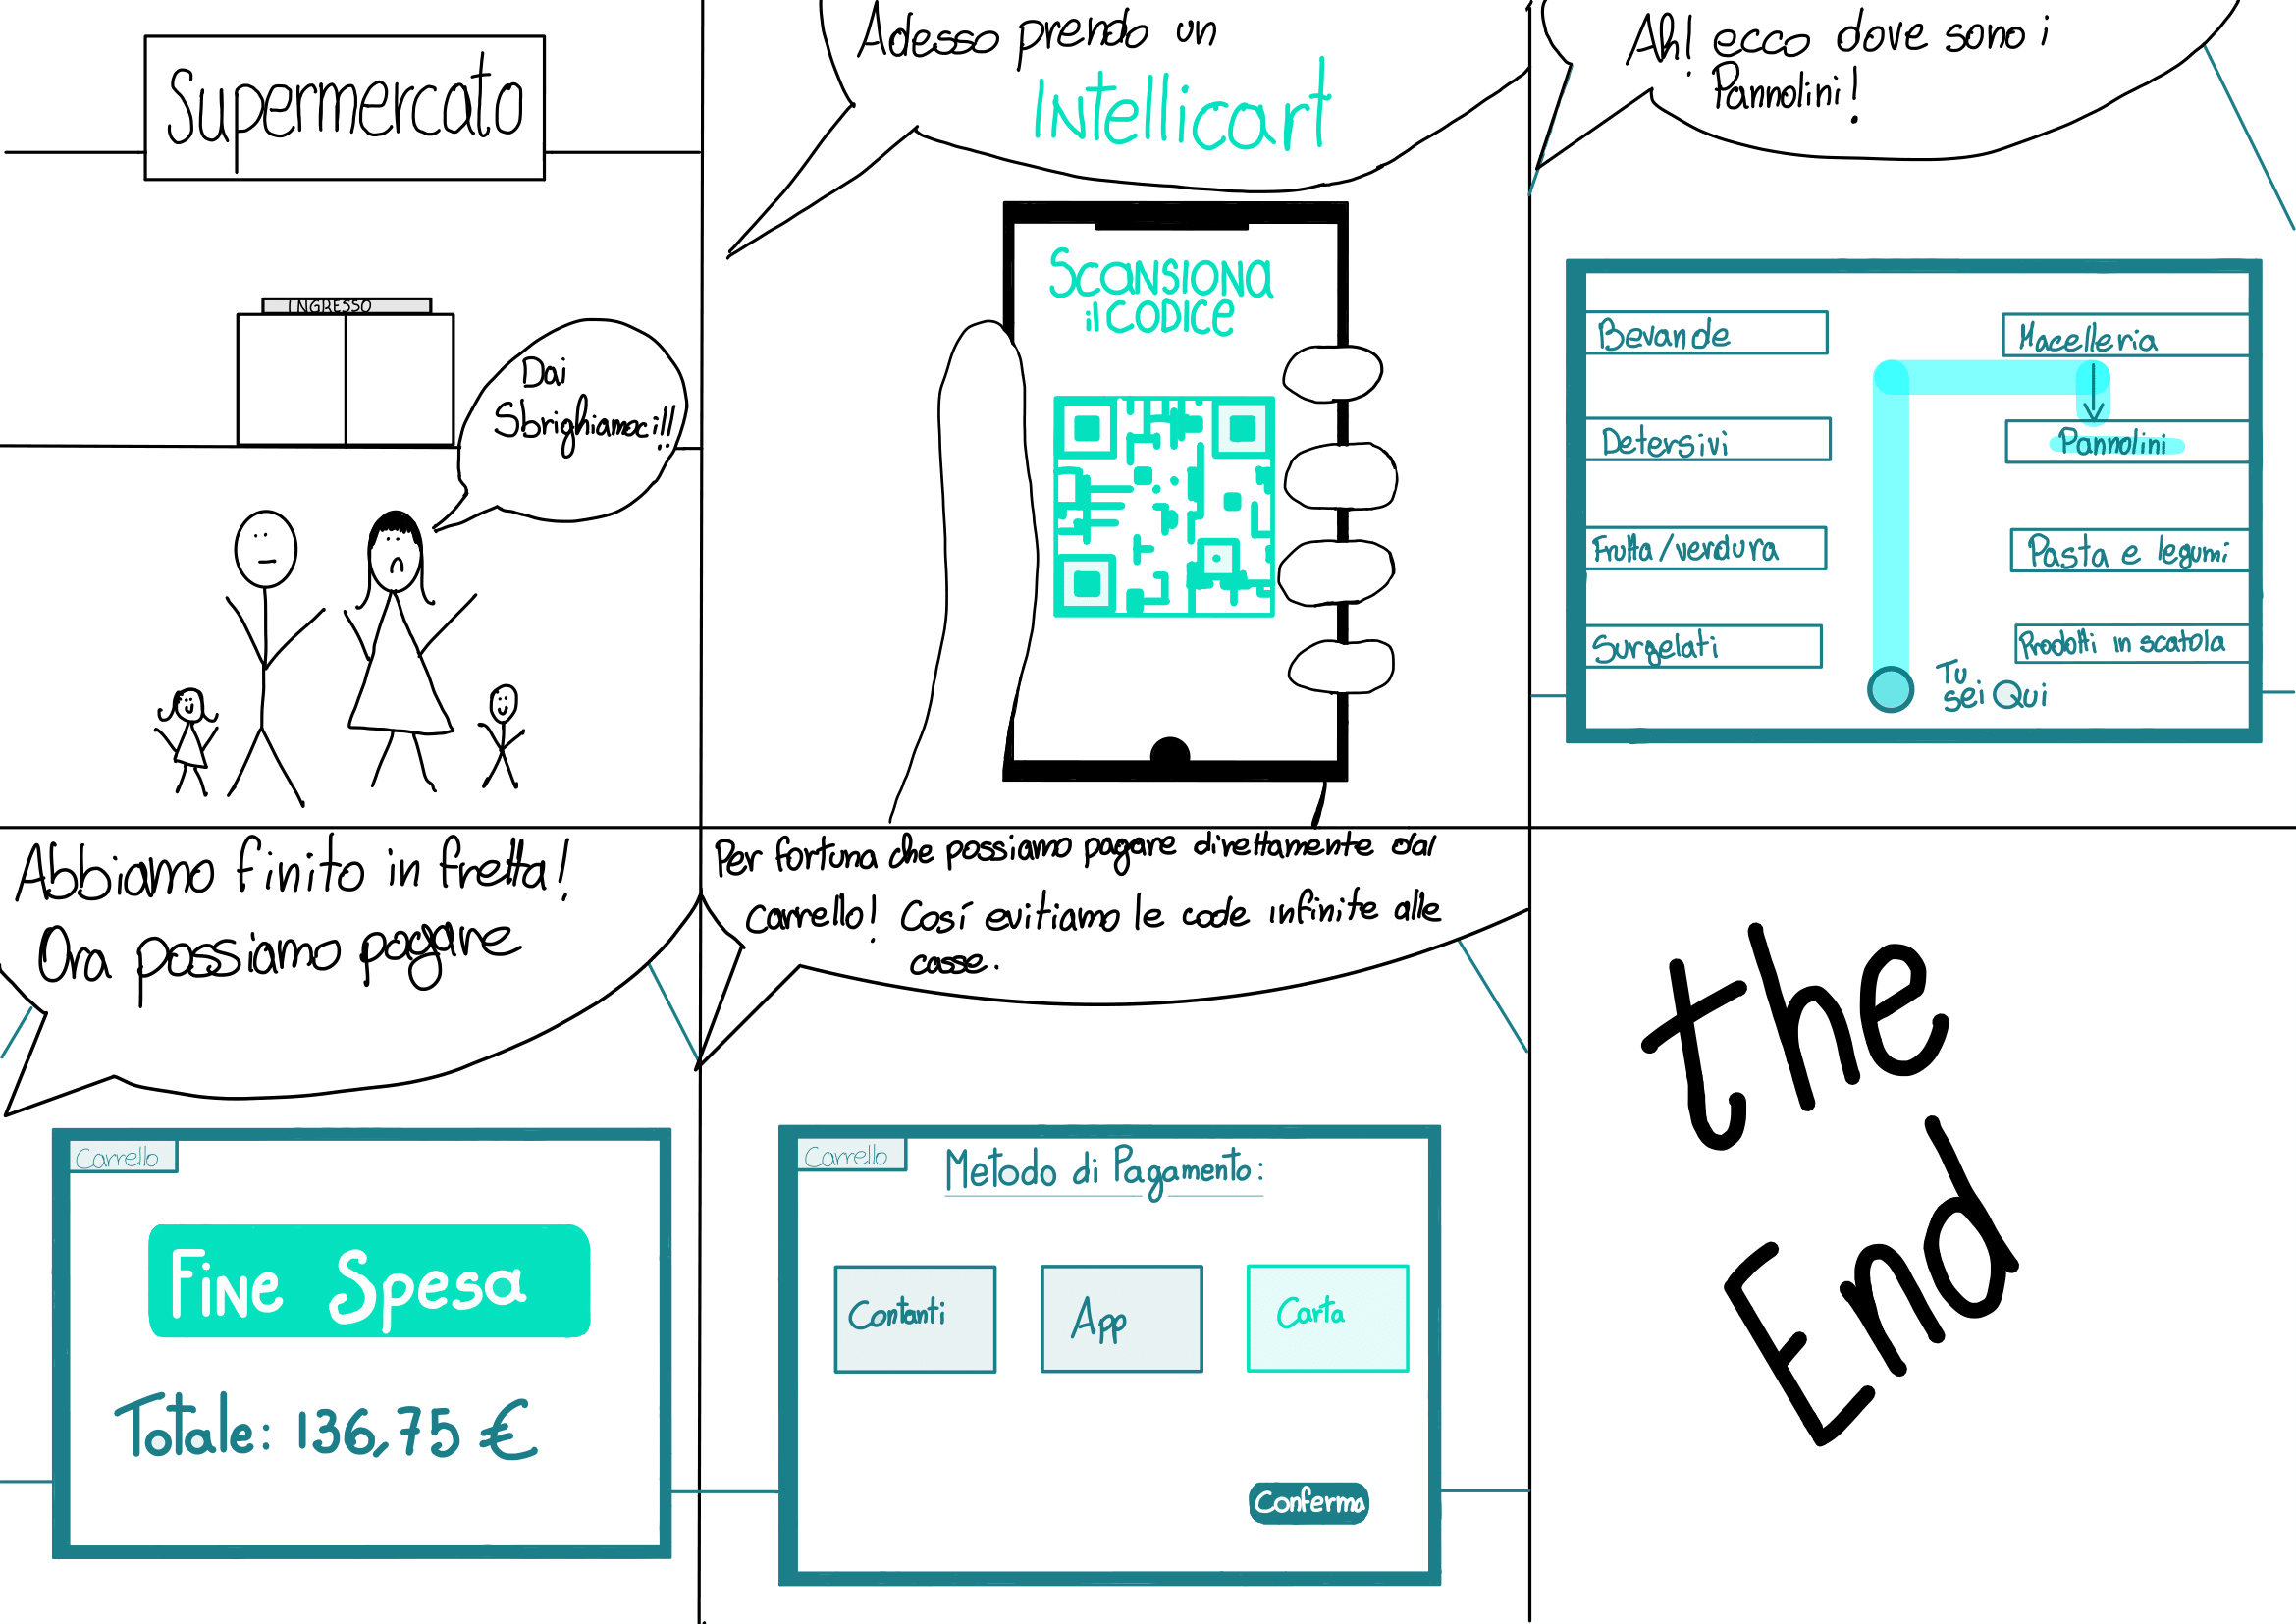 Supermercato
INGRESSO
Dai
Sbrighiamoci!!
Adesso prendo un
INtellicart
ScaNSiONa
il CODICE
Ah! ecco dove sono i
Pannolini!
Bevande
Macelleria
Detersivi
Pannolini
Frutta/verdura
Pasta e legumi
Surgelati
Prodotti in scatola
Tu
sei Qui
Abbiamo finito in fretta!
Ora possiamo pagare
Carrello
FiNe Spesa
Totale: 136,75 €
Per fortuna che possiamo pagare direttamente dal
carrello! Così evitiamo le code infinite alle
casse.
Carrello
Metodo di Pagamento:
Contanti
App
Carta
Conferma
the
End